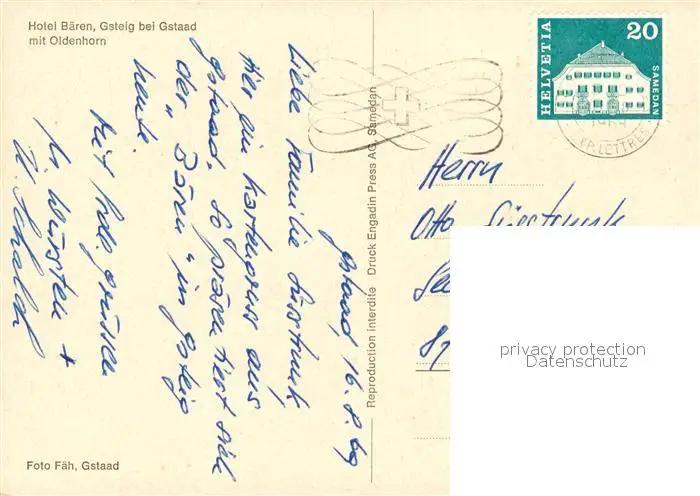 Hotel Bären, Gsteig bei Gstaad
mit Oldenhorn
Gstaad 16.8.69
Liebe Familie
Hier ein Kartengruss aus
Gstaad, So präsentiert sich
der "Bären" in Gsteig
heute.
Mit frdl. Grüssen
Foto Fäh, Gstaad
Reproduction interdite Druck Engadin Press AG, Samedan
HELVETIA
20
SAMEDAN
EXP. LETTRES
Herrn
Otto
privacy protection
Datenschutz